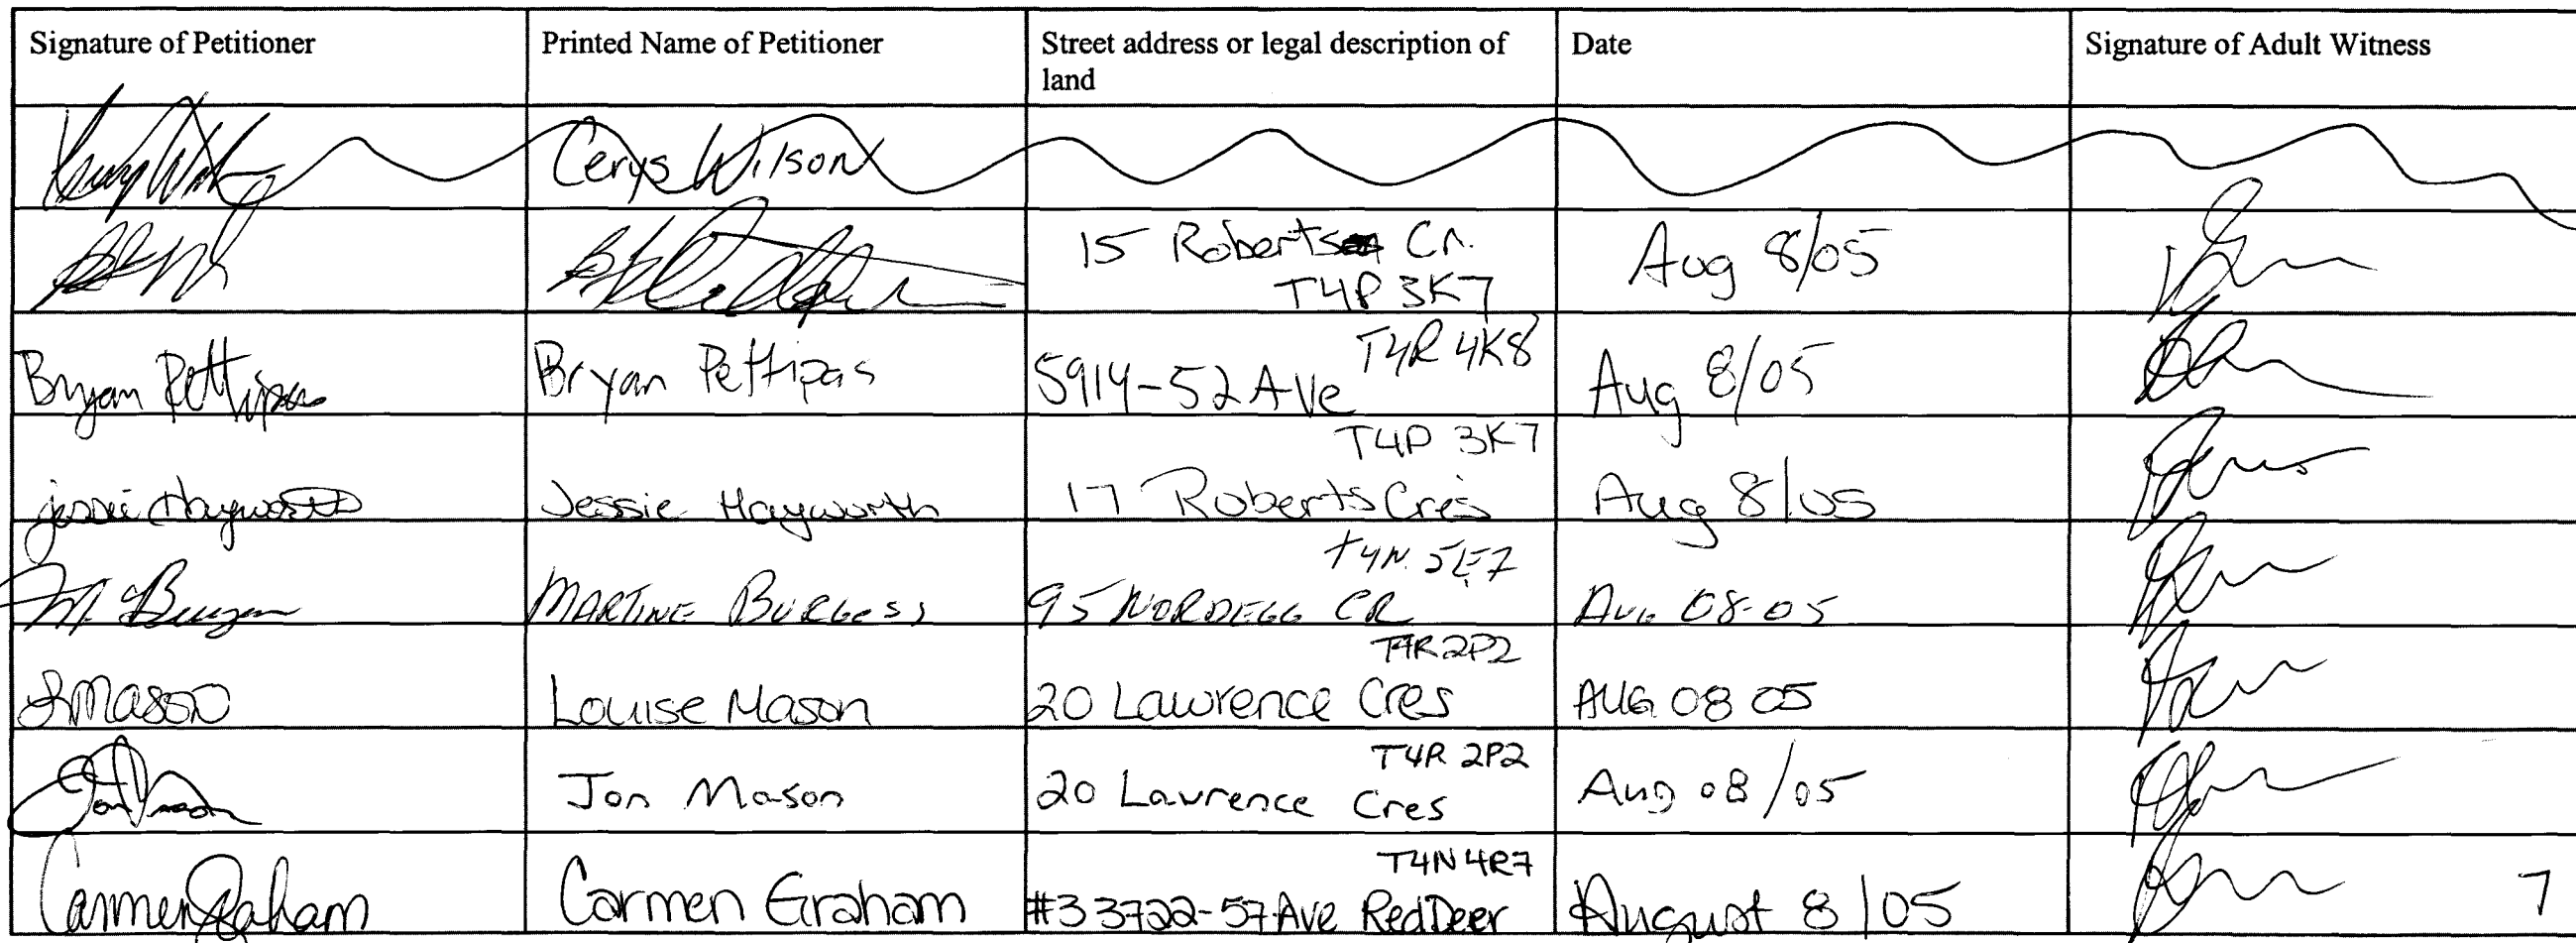 Signature of Petitioner
Printed Name of Petitioner
Street address or legal description of
land
Date
Signature of Adult Witness
Cerys Wilson
15 Roberts Cr.
T4P 3K7
Aug 8/05
Bryan Pettipas
Bryan Pettipas
T4R 4K8
5914-52 Ave
Aug 8/05
Jessie Hayworth
Jessie Hayworth
T4P 3K7
17 Roberts Cres
Aug 8/05
M. Burgess
MARTINE BURGESS
T4N 5E7
95 NORDEGG CR
AUG 08-05
L Mason
Louise Mason
T4R 2P2
20 Lawrence Cres
AUG 08 05
Jon Mason
Jon Mason
T4R 2P2
20 Lawrence Cres
Aug 08/05
Carmen Graham
Carmen Graham
T4N 4R7
#3 3722-57 Ave Red Deer
August 8/05
7